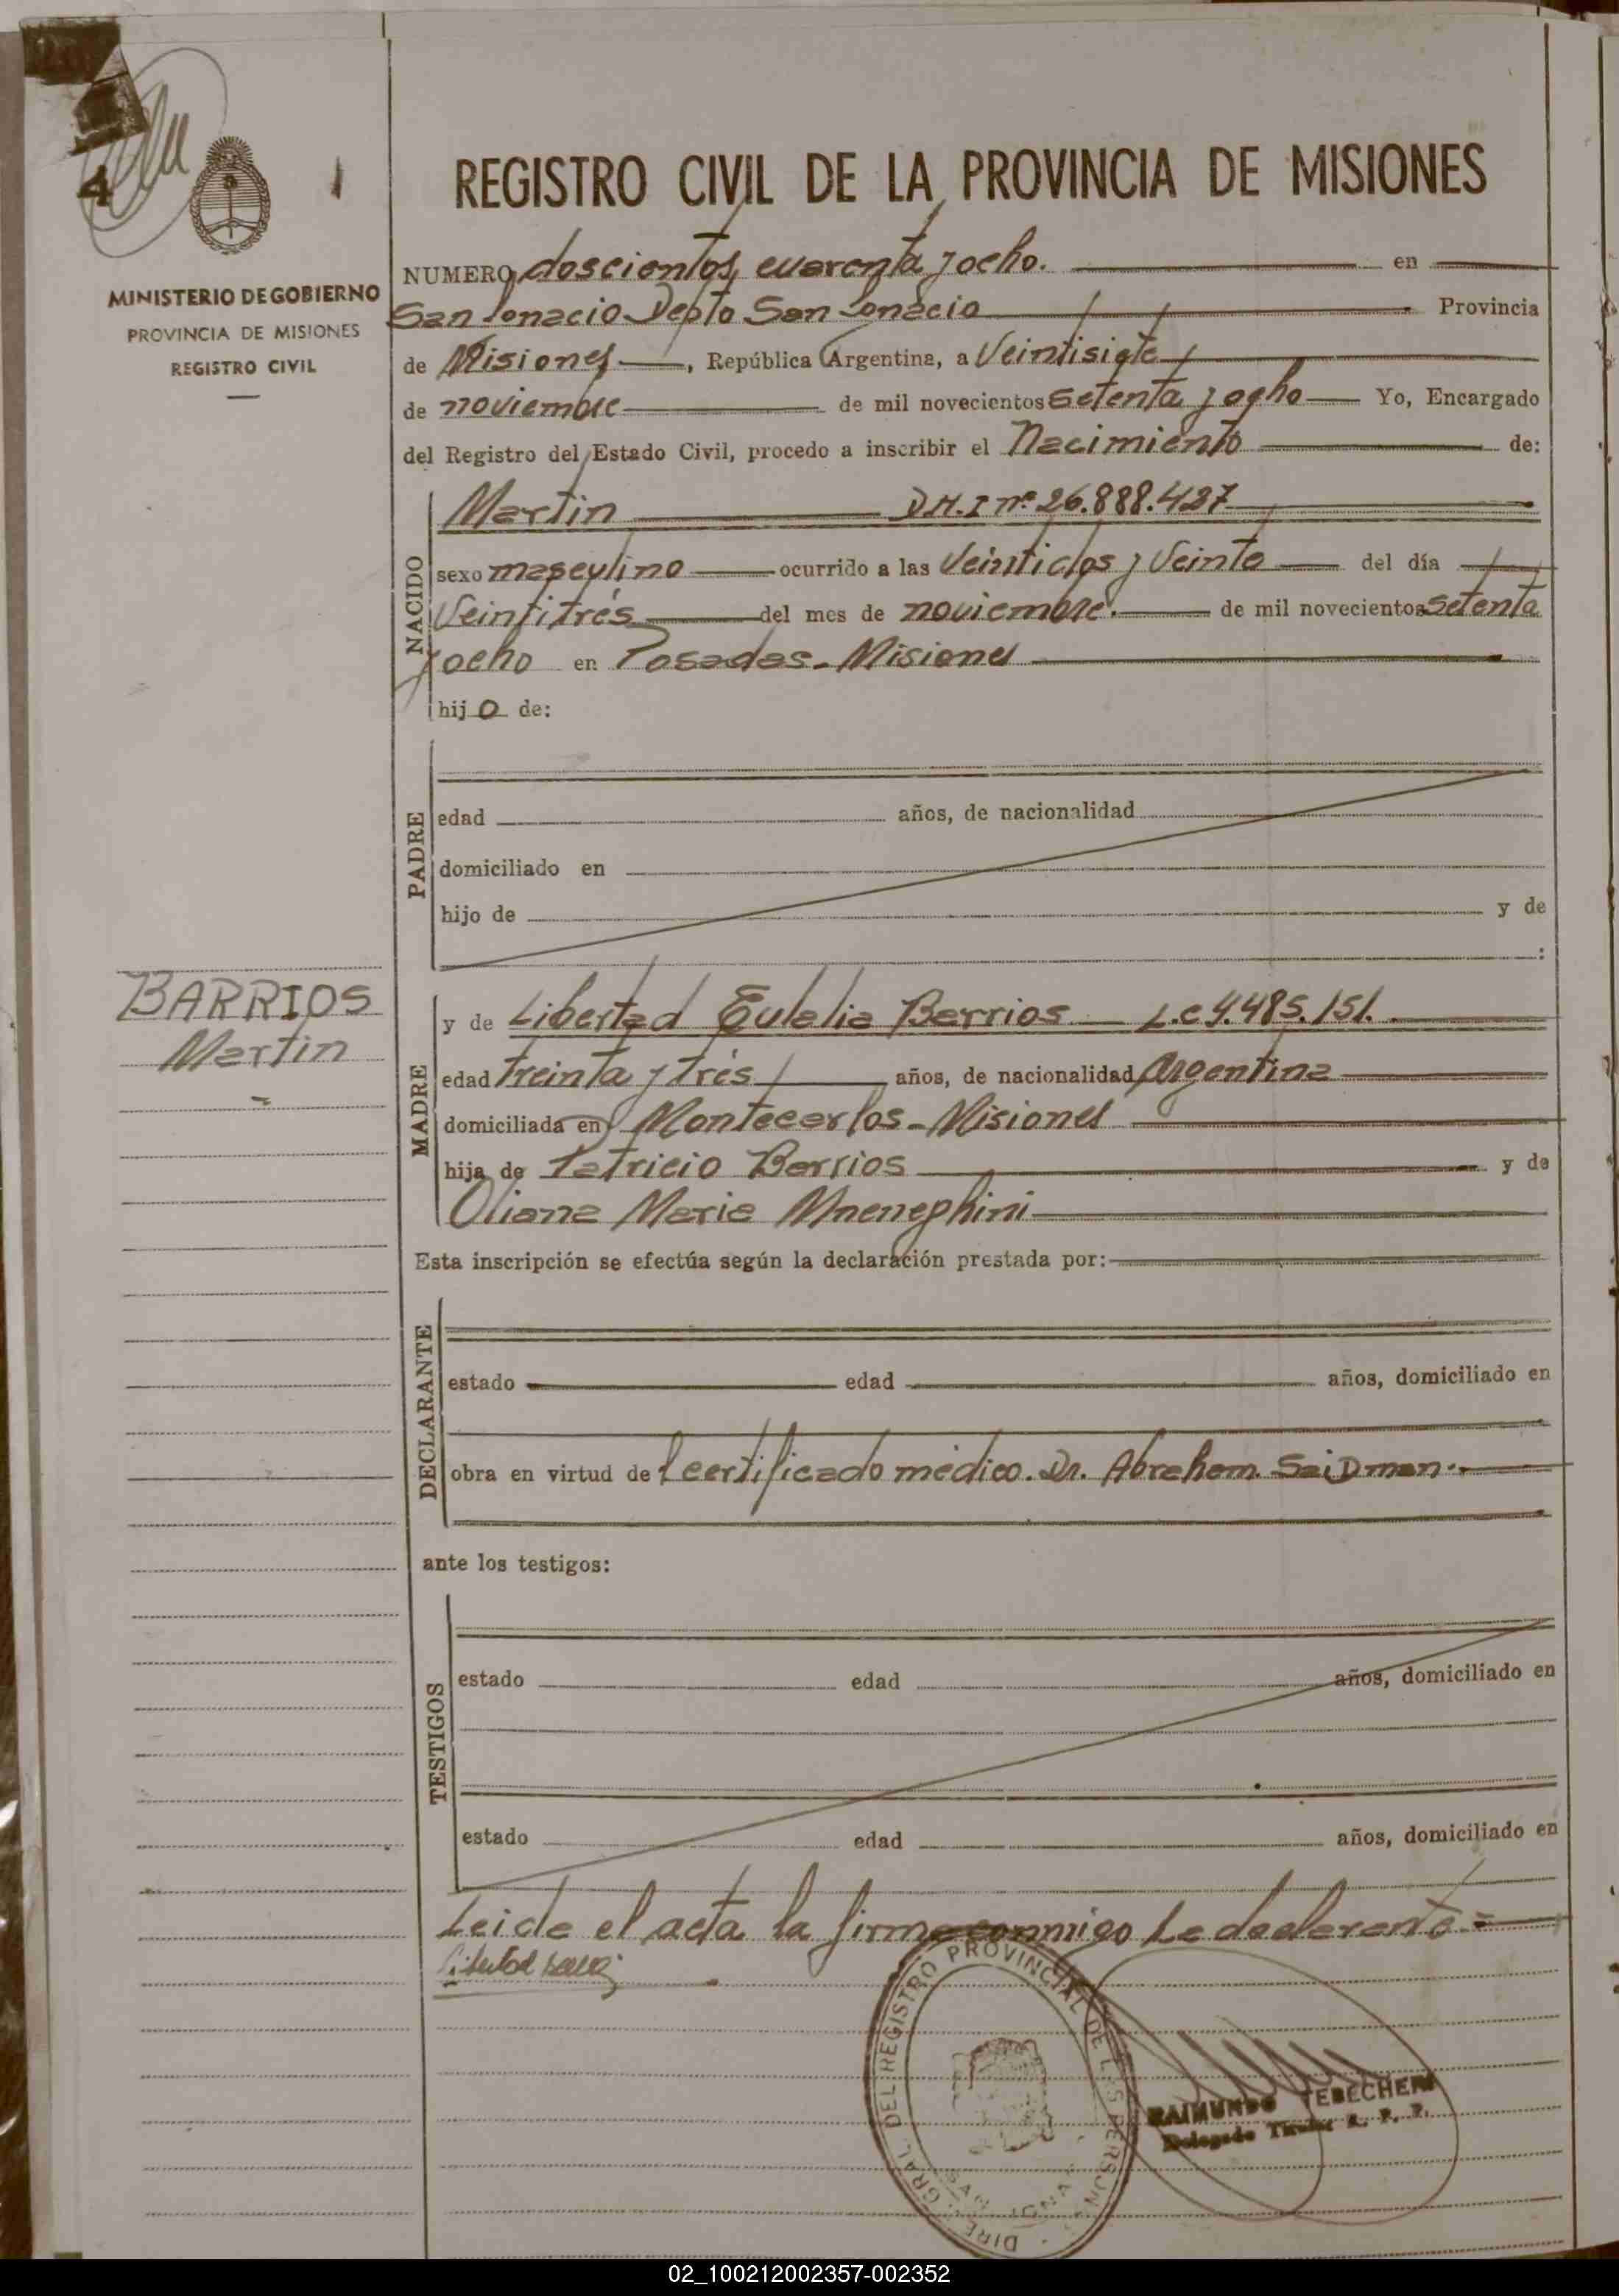 4
MINISTERIO DE GOBIERNO
PROVINCIA DE MISIONES
REGISTRO CIVIL
REGISTRO CIVIL DE LA PROVINCIA DE MISIONES
NUMERO doscientos cuarenta y ocho. en
San Ignacio Depto San Ignacio Provincia
de Misiones, República Argentina, a Veintisiete
de noviembre de mil novecientos setenta y ocho Yo, Encargado
del Registro del Estado Civil, procedo a inscribir el Nacimiento de:
NACIDO
Martin D.N.I nº 26.888.427
sexo masculino ocurrido a las Veintidos y Veinte del día
Veintitrés del mes de noviembre. de mil novecientos setenta
y ocho en Posadas - Misiones
hijo de:
PADRE
edad años, de nacionalidad
domiciliado en
hijo de y de
:
BARRIOS
Martin
MADRE
y de Libertad Eulalia Barrios L.C 4.485.151.
edad treinta y trés años, de nacionalidad Argentina
domiciliada en Montecarlos - Misiones
hija de Patricio Barrios y de
Oliana Maria
Esta inscripción se efectúa según la declaración prestada por:
DECLARANTE
estado edad años, domiciliado en
obra en virtud del certificado médico. Dr. Abraham Saidman.
ante los testigos:
TESTIGOS
estado edad años, domiciliado en
estado edad años, domiciliado en
Leida el acta la firma conmigo La declarante.=
DIRE. GRAL. DEL REGISTRO PROVINCIAL DE LAS PERSON
SAN IGNA
RAIMUNDO TEBECHERI
Delegado Titular R. P. P.
02_100212002357-002352